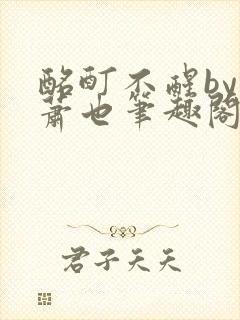 酩酊不醒by
萧也笔趣阁
君子天天